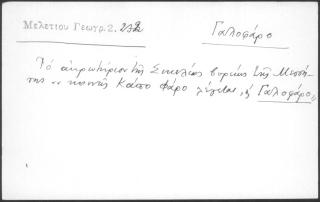 Μελετίου Γεωγρ. 2. 232
Γαλοφάρο
Τό ἀκρωτήριον τῆς Σικελίας βορείως τῆς Μεσσή-
της .. κοινῶς Κάπο Φάρο λέγεται, ἤ Γαλοφάρο,,